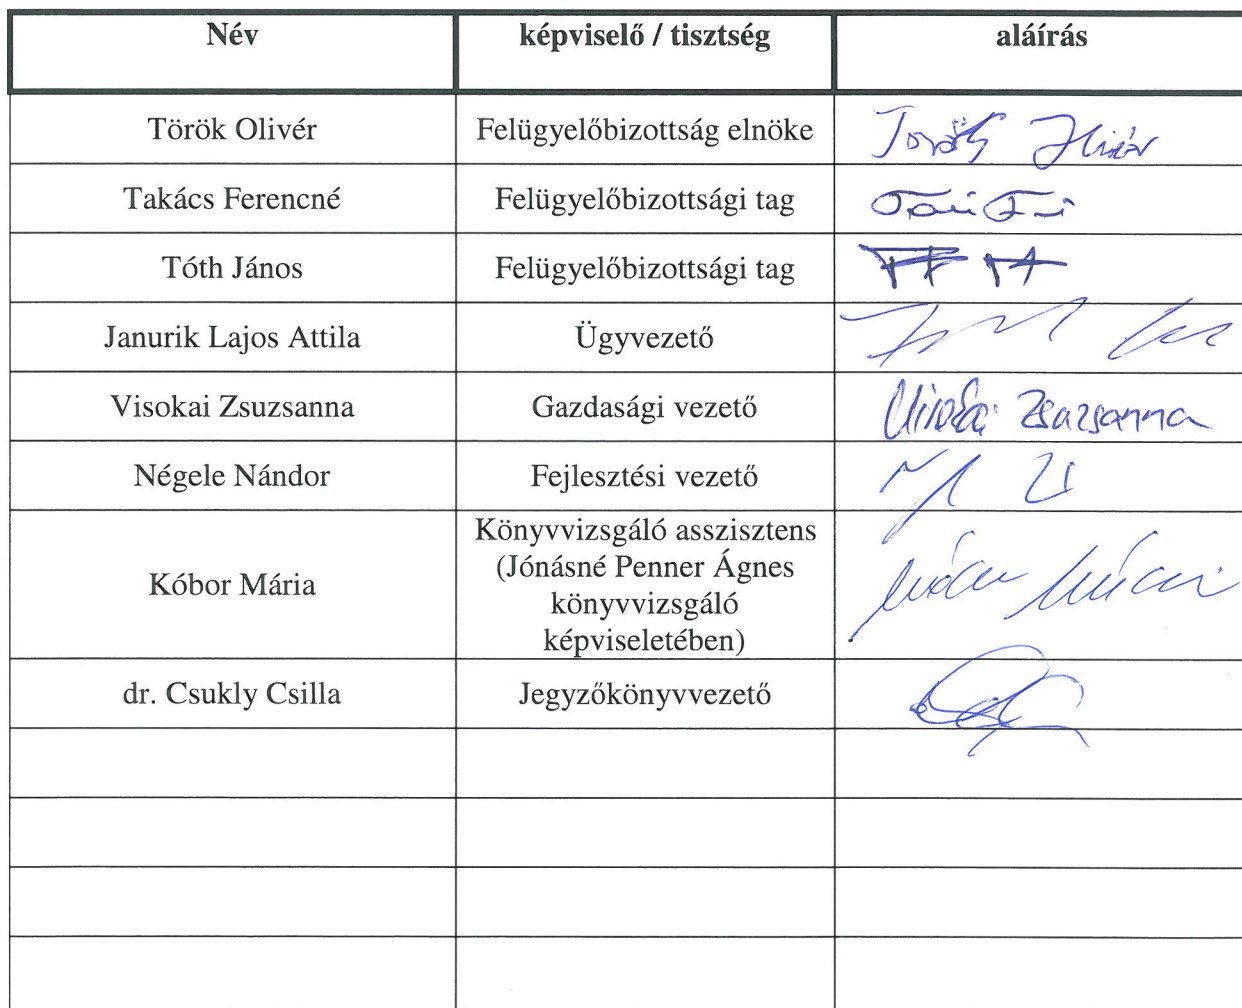 Név képviselő / tisztség aláírás
Török Olivér Felügyelőbizottság elnöke Török Olivér
Takács Ferencné Felügyelőbizottsági tag
Tóth János Felügyelőbizottsági tag
Janurik Lajos Attila Ügyvezető
Visokai Zsuzsanna Gazdasági vezető Visokai Zsuzsanna
Négele Nándor Fejlesztési vezető
Könyvvizsgáló asszisztens
(Jónásné Penner Ágnes
Kóbor Mária könyvvizsgáló
képviseletében)
dr. Csukly Csilla Jegyzőkönyvvezető